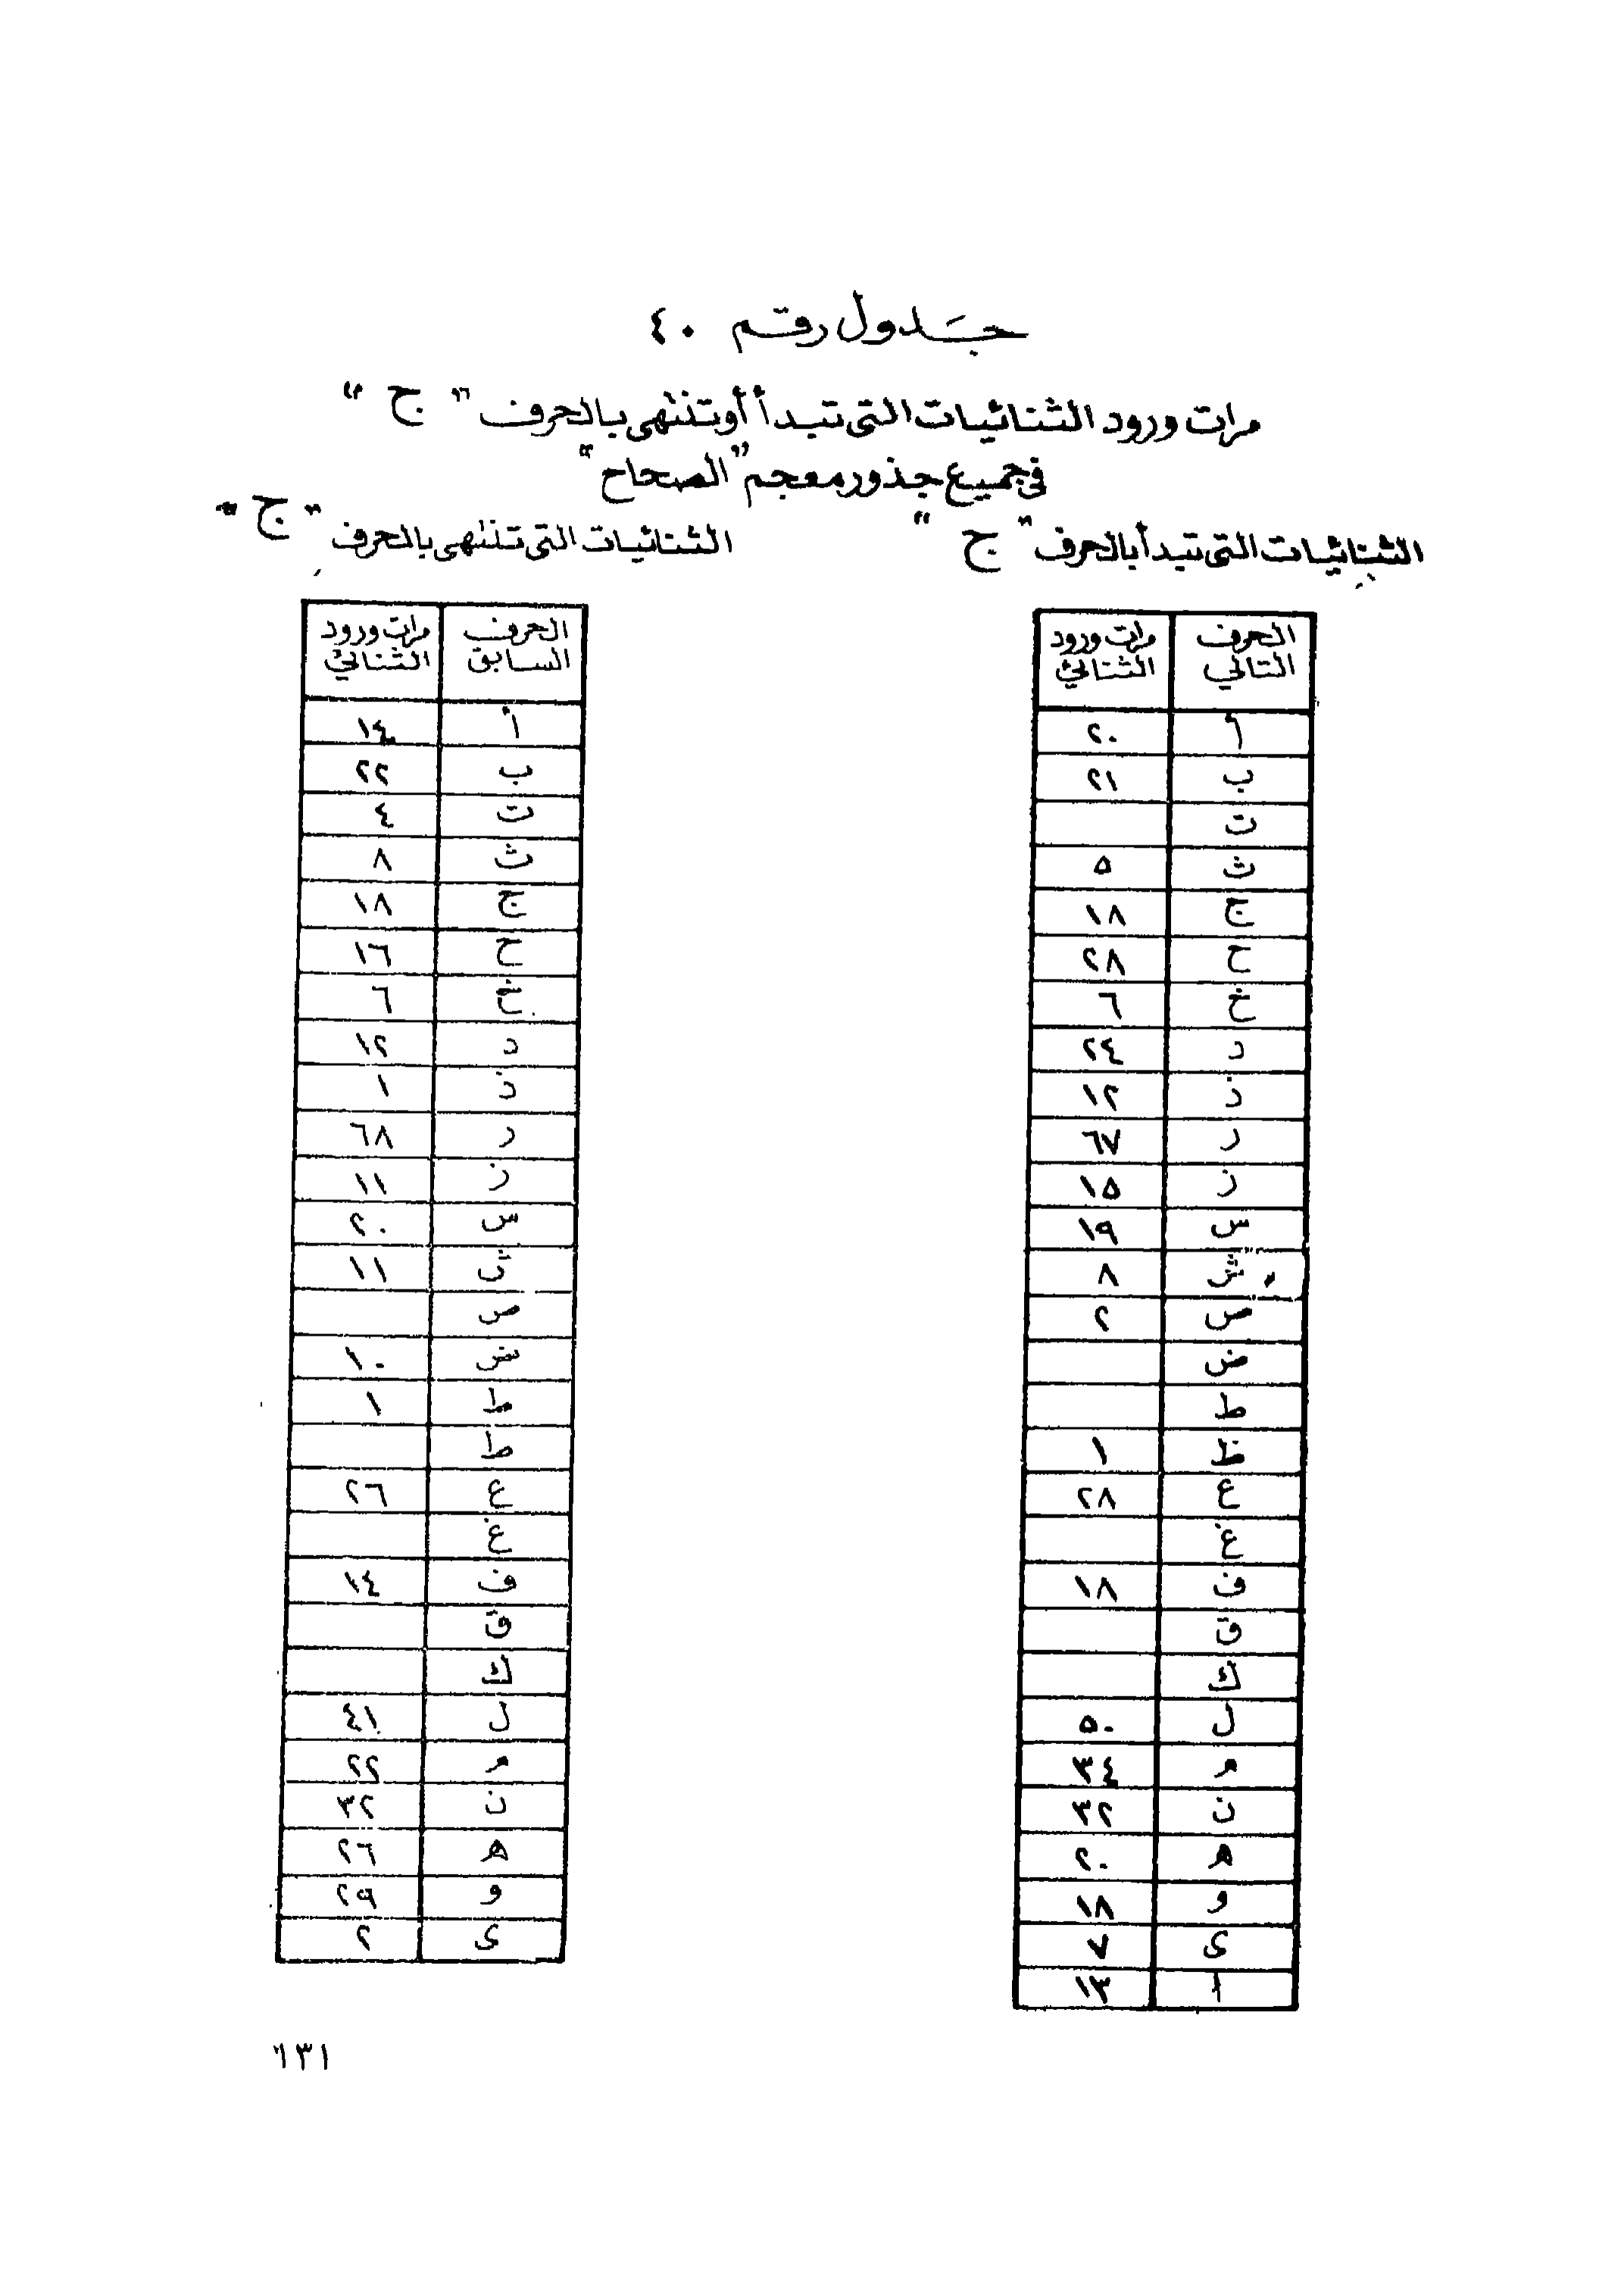 جدول رقم ٤٠
مرات ورود الثنائيات التى تبدأ أو تنتهى بالحرف " ج "
فى جميع جذور معجم "الصحاح"
الثنائيات التى تبدأ بالحرف " ج "
الحرف التالي | مرات ورود الثنائي
أ | ٢٠
ب | ٢١
ت |
ث | ٥
ج | ١٨
ح | ٢٨
خ | ٦
د | ٢٤
ذ | ١٢
ر | ٦٧
ز | ١٥
س | ١٩
ش | ٨
ص | ٢
ض |
ط |
ظ | ١
ع | ٢٨
غ |
ف | ١٨
ق |
ك |
ل | ٥٠
م | ٣٤
ن | ٣٢
ه | ٢٠
و | ١٨
ي | ٧
ا | ١٣
الثنائيات التى تنتهى بالحرف " ج "
الحرف السابق | مرات ورود الثنائي
أ | ١٤
ب | ٢٢
ت | ٤
ث | ٨
ج | ١٨
ح | ١٦
خ | ٦
د | ١٢
ذ | ١
ر | ٦٨
ز | ١١
س | ٢٠
ش | ١١
ص |
ض | ١٠
ط | ١
ط |
ع | ٢٦
غ |
ف | ١٤
ق |
ك |
ل | ٤١
م | ٢٢
ن | ٣٢
ه | ٢٦
و | ٢٩
ي | ٢
٦٣١